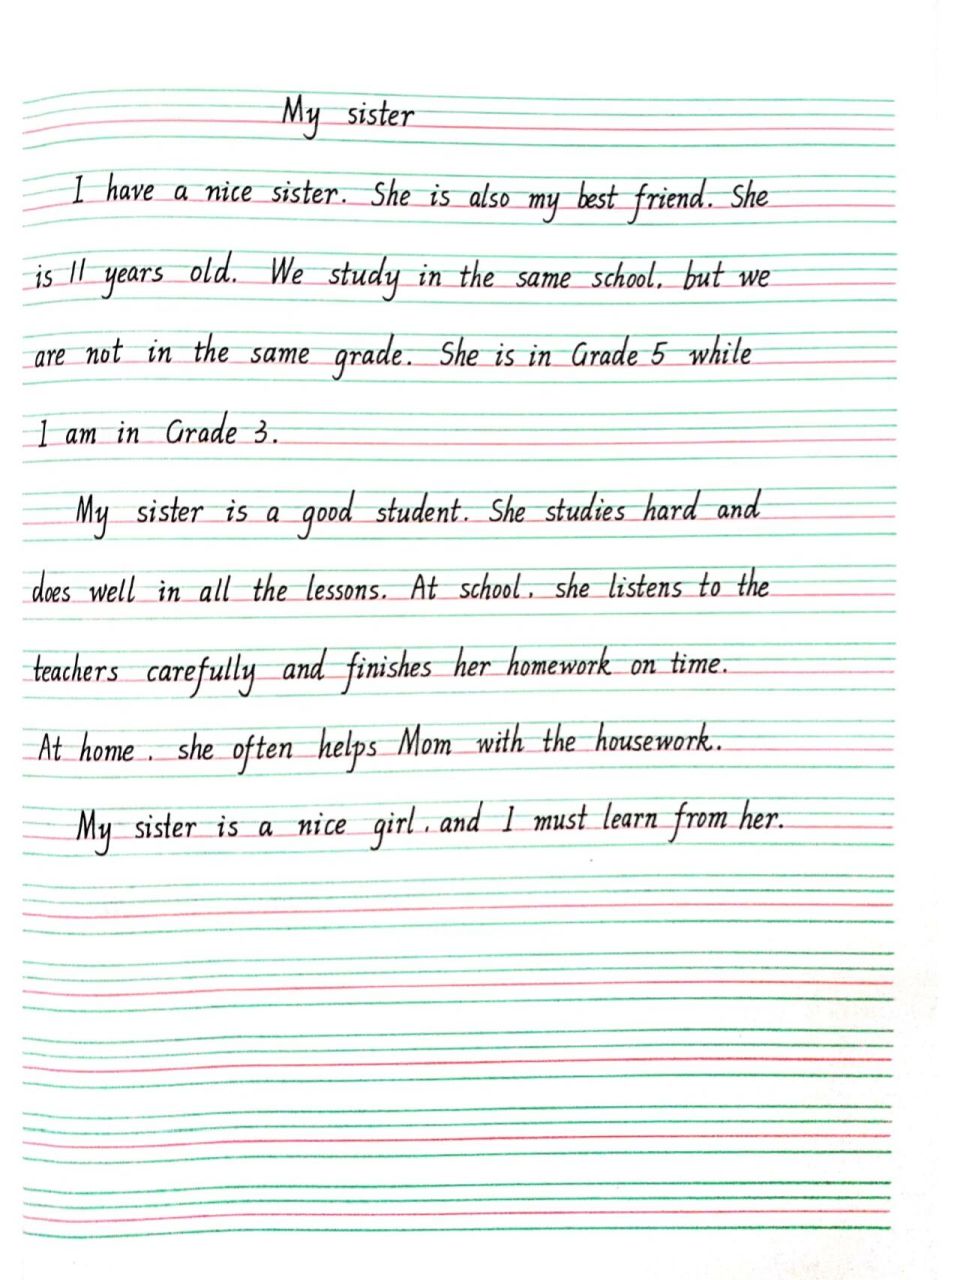 My sister
I have a nice sister. She is also my best friend. She
is 11 years old. We study in the same school, but we
are not in the same grade. She is in Grade 5 while
I am in Grade 3.
My sister is a good student. She studies hard and
does well in all the lessons. At school, she listens to the
teachers carefully and finishes her homework on time.
At home, she often helps Mom with the housework.
My sister is a nice girl, and I must learn from her.